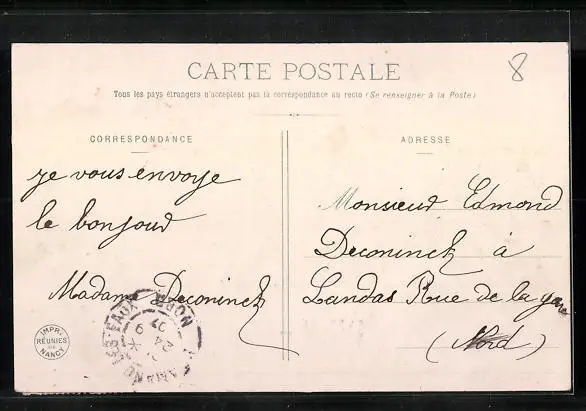 8
CARTE POSTALE
Tous les pays étrangers n'acceptent pas la correspondance au recto (Se renseigner à la Poste)
CORRESPONDANCE
je vous envoye
le bonjour
Madame Deconinck
ADRESSE
Monsieur Edmond
Deconinck à
Landas Rue de la gare
(Nord)
IMPR.
RÉUNIES
DE
NANCY
AMAND LES EAUX
NORD
24
9
07